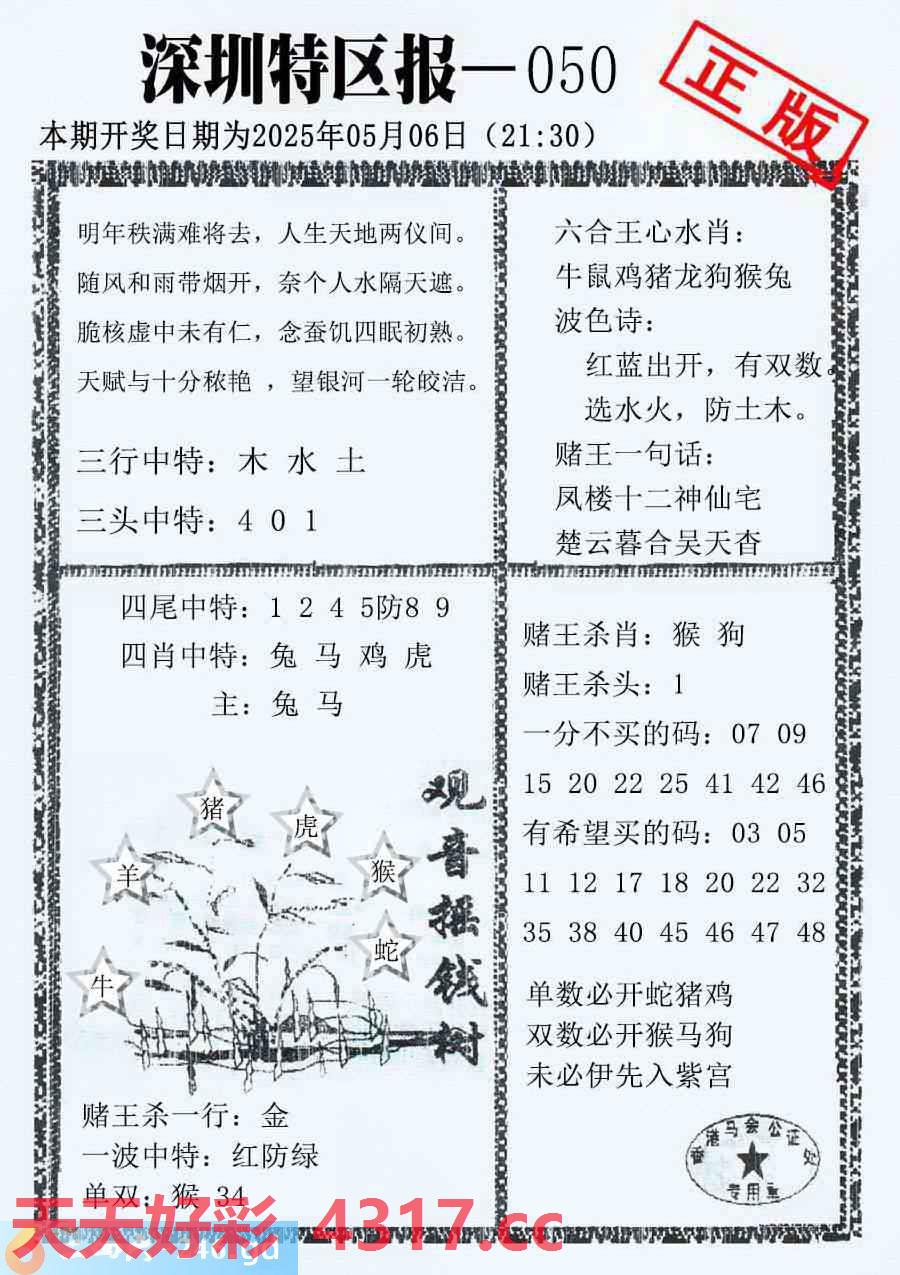 深圳特区报—050
正版
本期开奖日期为2025年05月06日（21:30）
明年秩满难将去，人生天地两仪间。
随风和雨带烟开，奈个人水隔天遮。
脆核虚中未有仁，念蚕饥四眠初熟。
天赋与十分秾艳 ，望银河一轮皎洁。
三行中特：木 水 土
三头中特：4 0 1
六合王心水肖：
牛鼠鸡猪龙狗猴兔
波色诗：
红蓝出开，有双数。
选水火，防土木。
赌王一句话：
凤楼十二神仙宅
楚云暮合吴天杳
四尾中特：1 2 4 5防8 9
四肖中特：兔 马 鸡 虎
主：兔 马
猪
虎
羊
猴
蛇
牛
观音摇钱树
赌王杀一行：金
一波中特：红防绿
单双：猴 34
赌王杀肖：猴 狗
赌王杀头：1
一分不买的码：07 09
15 20 22 25 41 42 46
有希望买的码：03 05
11 12 17 18 20 22 32
35 38 40 45 46 47 48
单数必开蛇猪鸡
双数必开猴马狗
未必伊先入紫宫
香港马会公证处
专用章
天天好彩 4317.cc